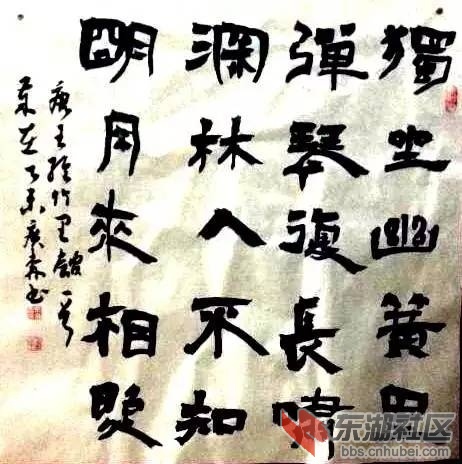 獨坐幽篁里
彈琴復長嘯
深林人不知
朙月來相照
唐王維竹里館一首
东湖社区
bbs.cnhubei.com